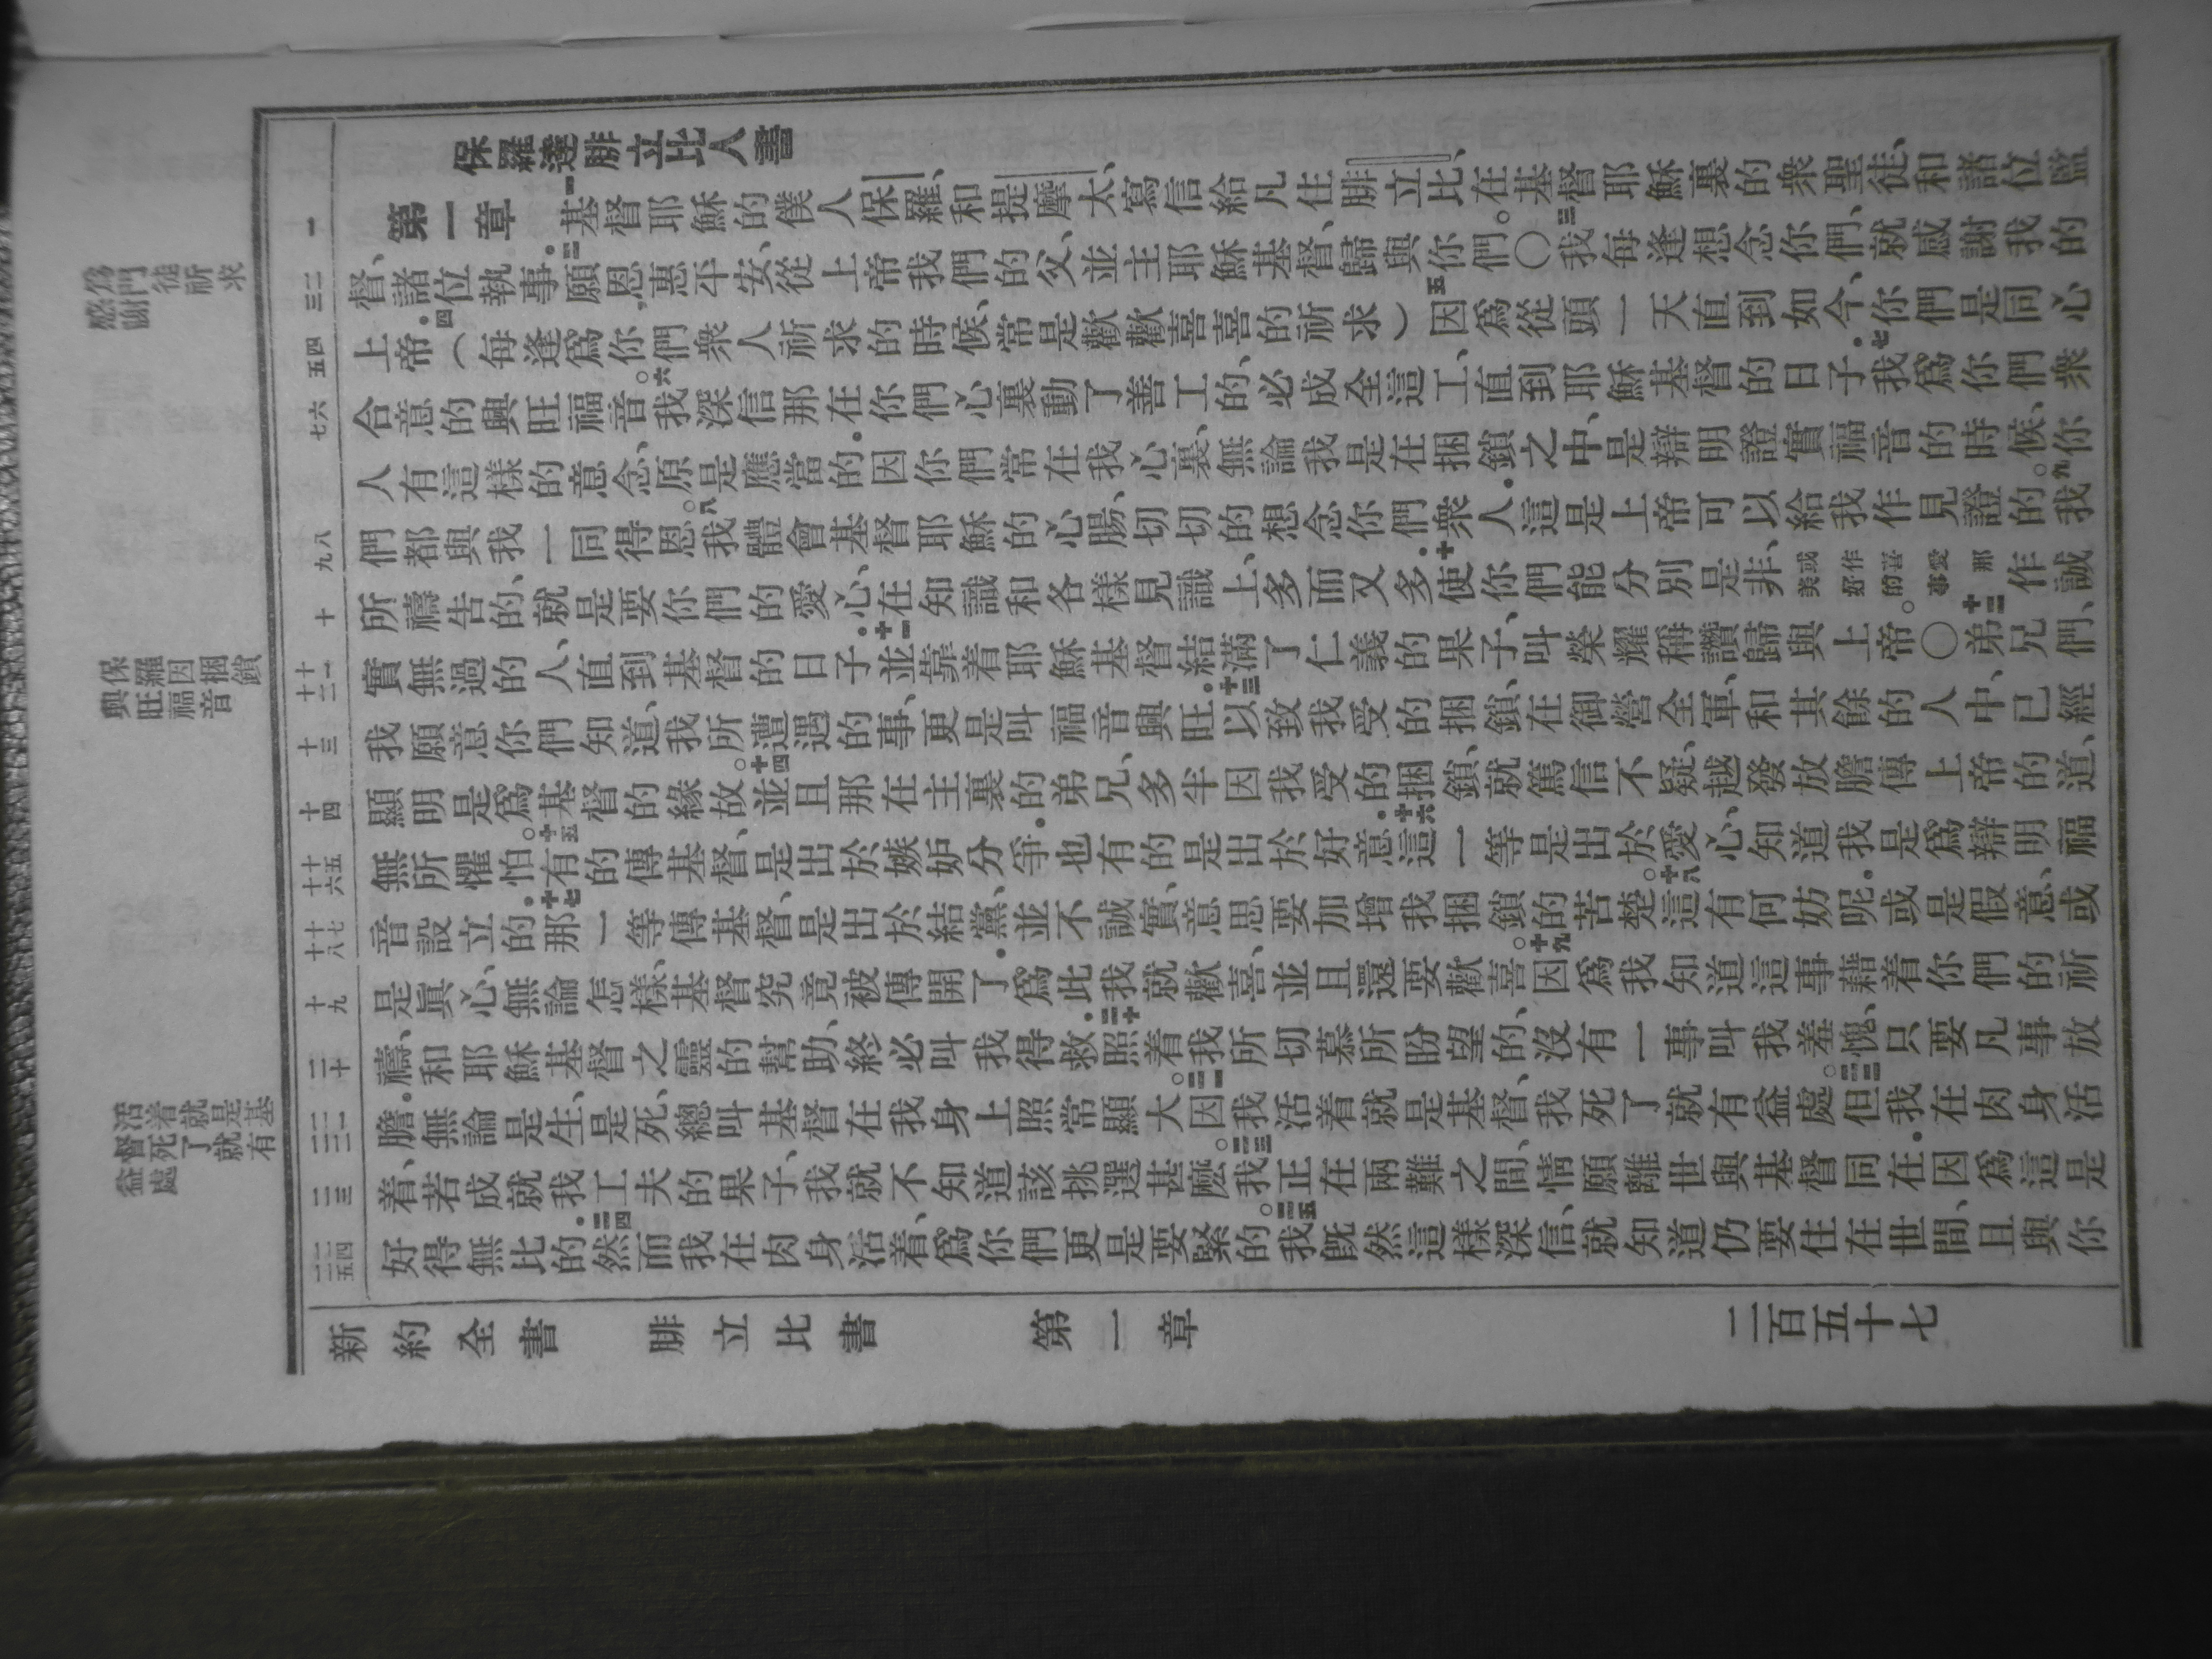 保羅達腓立比人書
第一章 一基督耶穌的僕人保羅、和提摩太、寫信給凡住腓立比、在基督耶穌裏的衆聖徒、和諸位監
督、諸位執事．二願恩惠平安、從上帝我們的父、並主耶穌基督、歸與你們。〇三我每逢想念你們、就感謝我的
上帝．四（每逢爲你們衆人祈求的時候、常是歡歡喜喜的祈求）五因爲從頭一天直到如今、你們是同心
合意的興旺福音。六我深信那在你們心裏動了善工的、必成全這工、直到耶穌基督的日子．七我爲你們衆
人有這樣的意念、原是應當的．因你們常在我心裏、無論我是在捆鎖之中、是辯明證實福音的時候、你
們都與我一同得恩。八我體會基督耶穌的心腸、切切的想念你們衆人．這是上帝可以給我作見證的。九我
所禱告的、就是要你們的愛心、在知識和各樣見識上、多而又多．十使你們能分別是非、或作喜愛那美好的事作誠
實無過的人、直到基督的日子．十一並靠着耶穌基督結滿了仁義的果子、叫榮耀稱讚歸與上帝。〇十二弟兄們、
我願意你們知道、我所遭遇的事、更是叫福音興旺．十三以致我受的捆鎖、在御營全軍、和其餘的人中、已經
顯明是爲基督的緣故。十四並且那在主裏的弟兄、多半因我受的捆鎖、就篤信不疑、越發放膽傳上帝的道、
無所懼怕。十五有的傳基督、是出於嫉妒分爭．也有的是出於好意．十六這一等是出於愛心、知道我是爲辯明福
音設立的．十七那一等傳基督、是出於結黨、並不誠實、意思要加增我捆鎖的苦楚。十八這有何妨呢．或是假意、或
是眞心、無論怎樣、基督究竟被傳開了．爲此我就歡喜、並且還要歡喜。十九因爲我知道這事藉着你們的祈
禱、和耶穌基督之靈的幫助、終必叫我得救．二十照着我所切慕所盼望的、沒有一事叫我羞愧、只要凡事放
膽．無論是生、是死、總叫基督在我身上照常顯大。二一因我活着就是基督、我死了就有益處。二二但我在肉身活
着、若成就我工夫的果子、我就不知道該挑選甚麼。二三我正在兩難之間、情願離世與基督同在．因爲這是
好得無比的．二四然而我在肉身活着、爲你們更是要緊的。二五我旣然這樣深信、就知道仍要住在世間、且與你
一
二三
四五
六七
八九
十
十一十二
十三
十四
十五十六
十七十八
十九
二十
二一二二
二三
二四二五
保羅因捆鎖
興旺福音
活着就是基
督死了就有
益處
新約全書 腓立比書 第一章 二百五十七